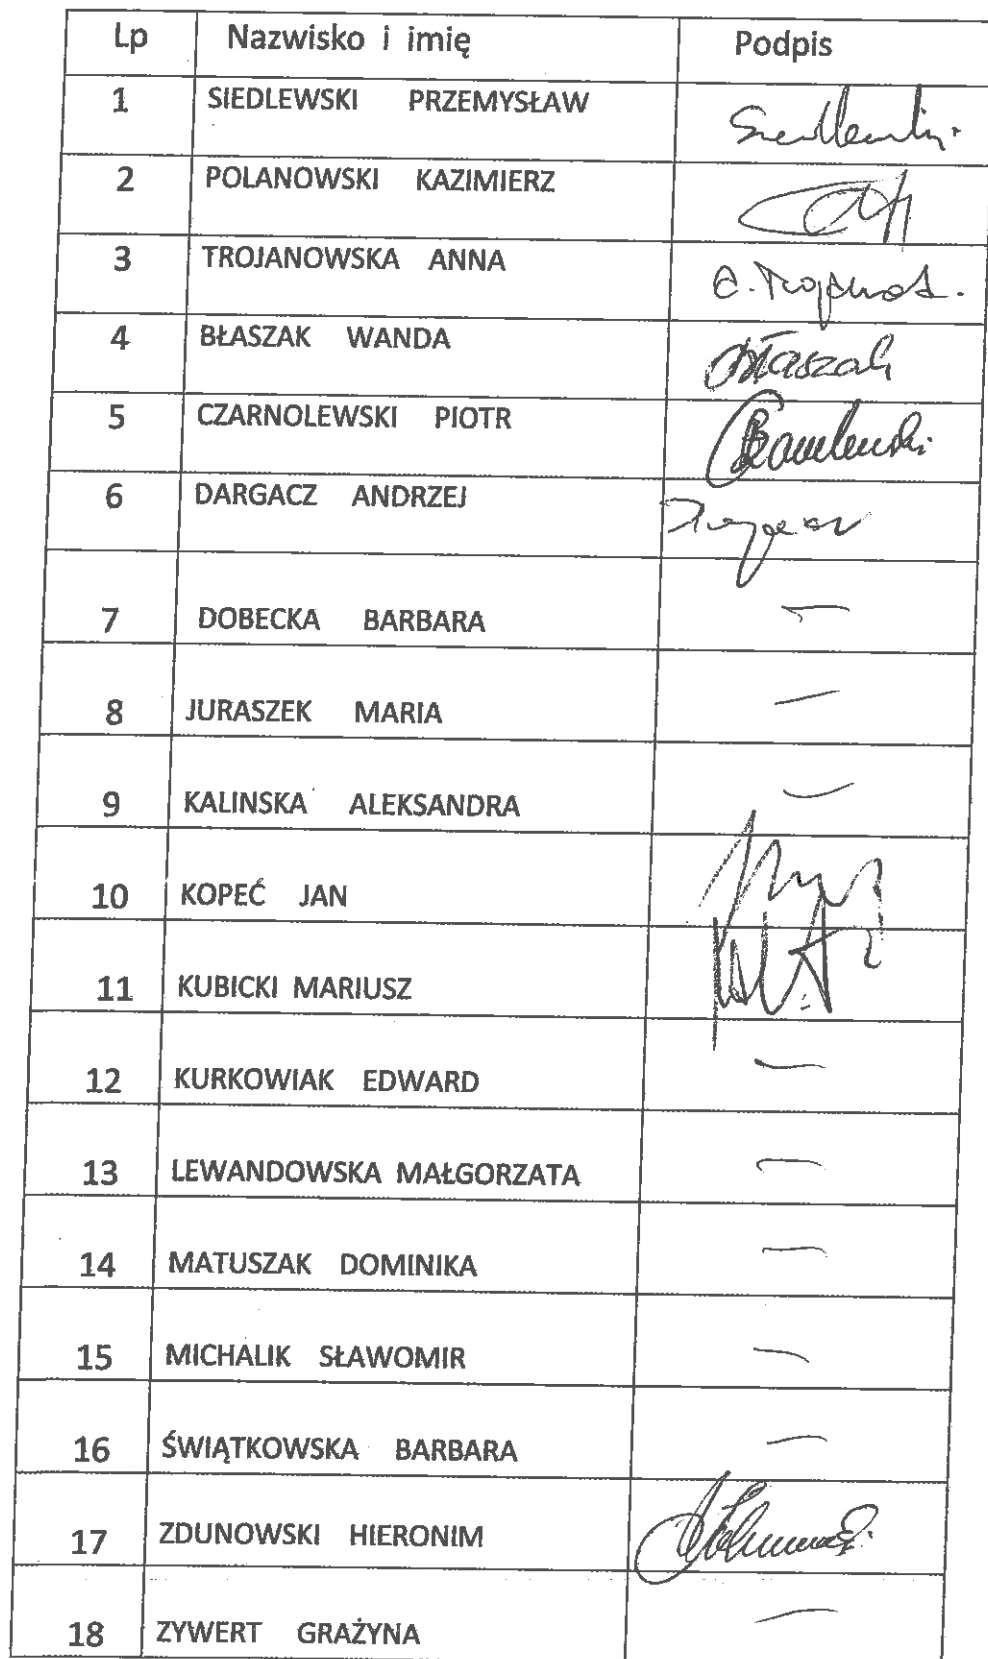 Lp Nazwisko i imię Podpis
1 SIEDLEWSKI PRZEMYSŁAW
2 POLANOWSKI KAZIMIERZ
3 TROJANOWSKA ANNA
4 BŁASZAK WANDA Błaszak
5 CZARNOLEWSKI PIOTR
6 DARGACZ ANDRZEJ
7 DOBECKA BARBARA —
8 JURASZEK MARIA —
9 KALINSKA ALEKSANDRA —
10 KOPEĆ JAN
11 KUBICKI MARIUSZ
12 KURKOWIAK EDWARD —
13 LEWANDOWSKA MAŁGORZATA —
14 MATUSZAK DOMINIKA —
15 MICHALIK SŁAWOMIR —
16 ŚWIĄTKOWSKA BARBARA —
17 ZDUNOWSKI HIERONIM
18 ZYWERT GRAŻYNA —